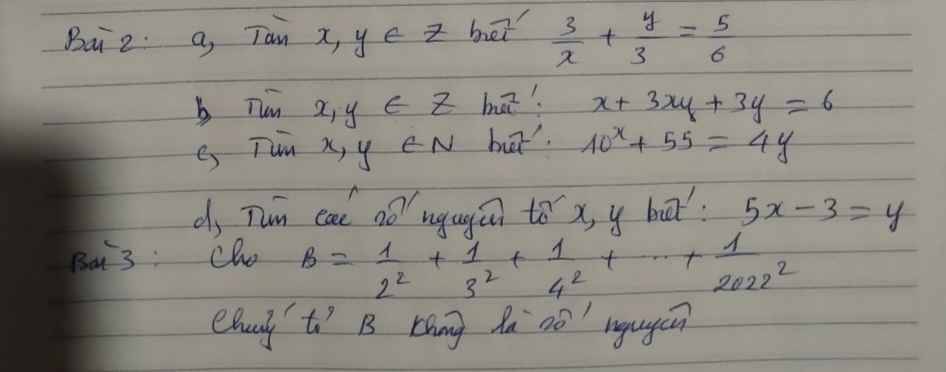 Bài 2: a, Tìm x, y ∈ Z biết 3/x + y/3 = 5/6
b, Tìm x, y ∈ Z biết: x + 3xy + 3y = 6
c, Tìm x, y ∈ N biết: 10^x + 55 = 4y
d, Tìm các số nguyên tố x, y biết: 5x - 3 = y
Bài 3: Cho B = 1/2² + 1/3² + 1/4² + ... + 1/2022²
Chứng tỏ B không là số nguyên